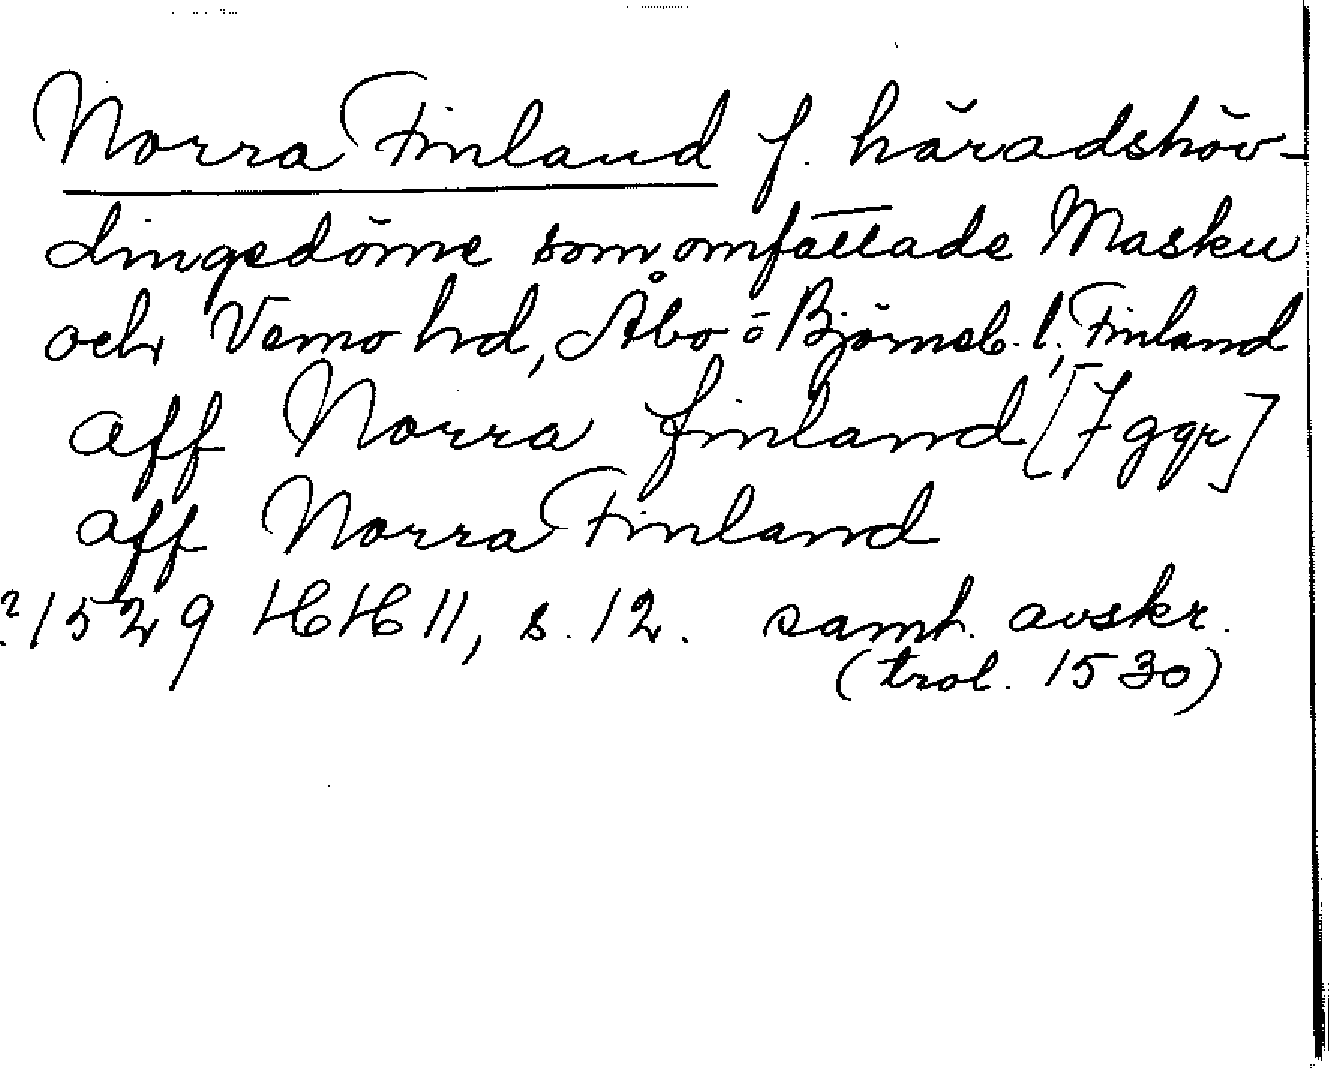 Norra Finland f. häradshöv-
dingedöme som omfattade Masku
och Vemo hd, Åbo o Björneb. l., Finland
aff Norra finland [7 ggr]
aff Norra Finland
?1529 HH II, s. 12. samt. avskr.
(trol. 1530)